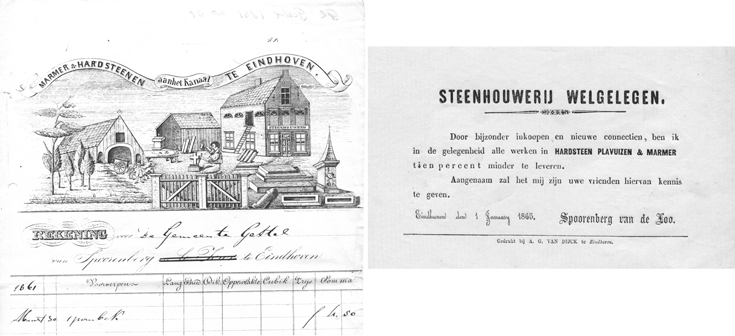 MARMER & HARDSTEENEN aan het Kanaal TE EINDHOVEN.
REKENING voor De Gemeente Gestel
van Spoorenberg te Eindhoven
1861 Voorwerpen Lang Breed Dik Oppervlakte Cubiek Prijs Somma
Maart 30
STEENHOUWERIJ WELGELEGEN.
Door bijzonder inkoopen en nieuwe connectien, ben ik
in de gelegenheid alle werken in HARDSTEEN PLAVUIZEN & MARMER
tien percent minder te leveren.
Aangenaam zal het mij zijn uwe vrienden hiervan kennis
te geven.
Eindhoven den 1 January 1865. Spoorenberg van de Loo.
Gedrukt bij A. G. VAN DIJCK te Eindhoven.